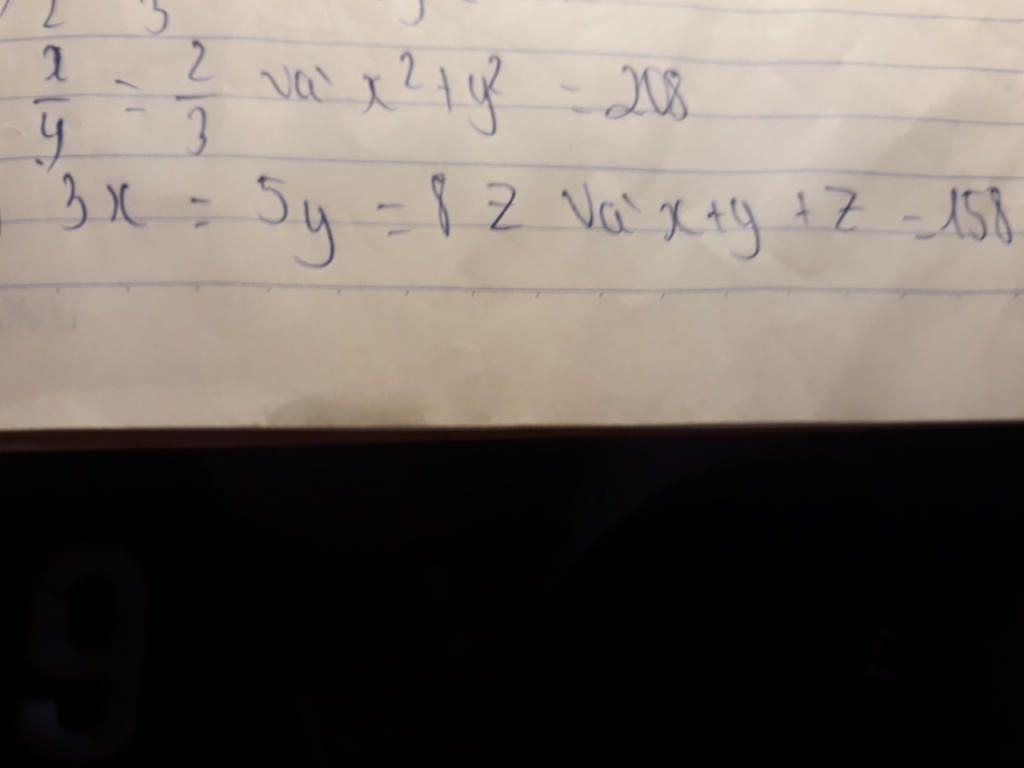 x/y = 2/3 và x² + y² = 208
3x = 5y = 8z và x + y + z = 158